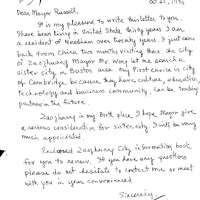 Oct 21, 1996
Dear Mayor Russell.
It is my pleasure to write this letter to you.
I have been living in United State thirty years I am
a resident of Needham over twenty years I just came
back from China two months visiting there the city
of Zaozhuang Mayor Mr. Wang let me search a
sister city in Boston area My first choice is city
of Cambridge because they have culture, education,
technology and business community, can be trading
partner in the future.
Zaozhuang is my birth place, I hope, Mayor give
a serious consideration for sister city. I will be very
much appreciated
Enclosed Zaozhuang City information book
for you to review. If you have any questions
please do not hesitate to contact me or meet
with you in your convenienced
Sincerely